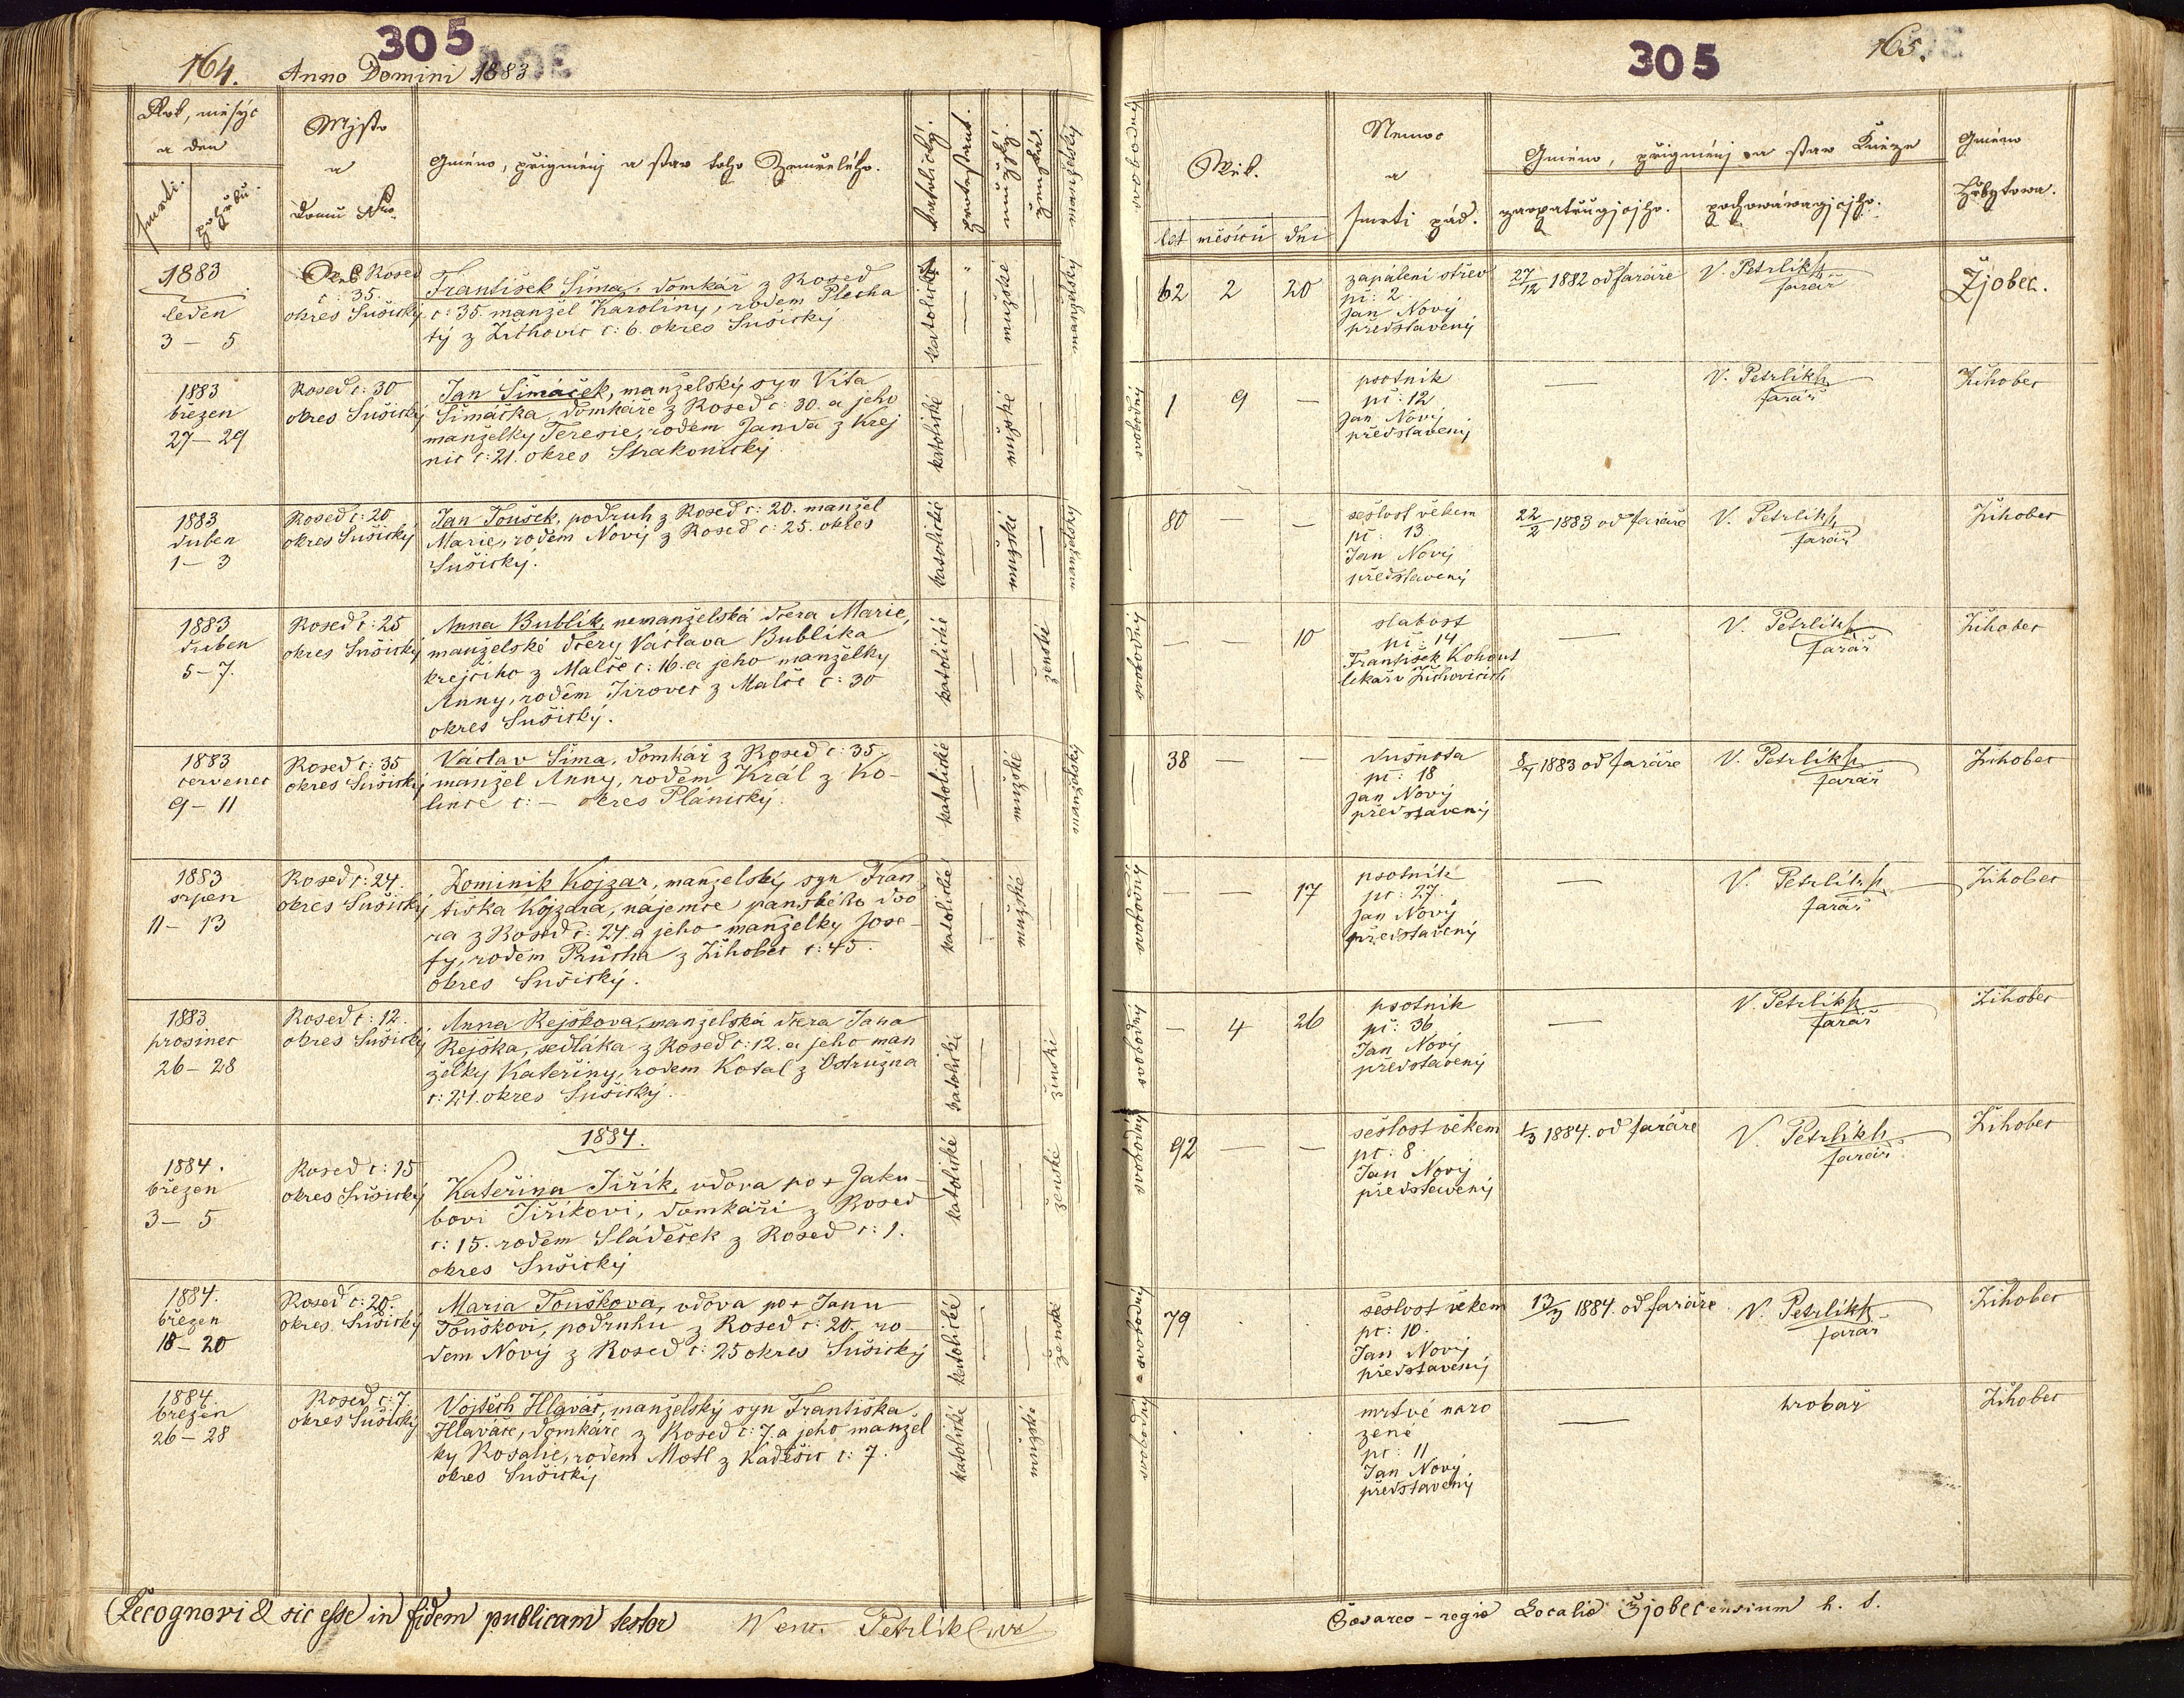 305
164. Anno Domini 1883
Rok, měsýc
a den
smrti.
pohřbu.
Mjsto
a
domu Nro.
Gméno, přigménj a stav toho Zemřelého.
katolický.
protestant.
mužský.
ženský.
manželský
1883
leden
3 – 5
Rosed
č: 35.
okres Sušický
František Šima, domkář z Rosed
č: 35. manžel Karolíny, rodem Plecha
tý z Žichovic č: 6. okres Sušický
katolické
mužské
manželský
1883
březen
27 – 29
Rosed č: 30
okres Sušický
Jan Šimáček, manželský syn Víta
Šimáčka, domkáře z Rosed č: 30. a jeho
manželky Teresie, rodem Janda z Krej
nic č: 21. okres Strakonický
katolické
mužské
1883
duben
1 – 3
Rosed č: 20
okres Sušický
Jan Toušek, podruh z Rosed č: 20. manžel
Marie, rodem Nový z Rosed č: 25. okres
Sušický.
katolické
mužské
manželský
1883
duben
5 – 7.
Rosed č: 25
okres Sušický
Anna Bublík, nemanželská dcera Marie,
manželské dcery Václava Bublíka
krejčího z Malče č: 16. a jeho manželky
Anny, rodem Jirovec z Malče č: 30
okres Sušický.
katolické
ženské
1883
červenec
9 – 11
Rosed č: 35
okres Sušický
Václav Šima, domkář z Rosed č: 35.
manžel Anny, rodem Král z Ko-
lince č: – okres Plánický.
katolické
mužské
manželský
1883
srpen
11 – 13
Rosed č: 24.
okres Sušický
Dominik Kojzar, manželský syn Fran
tiška Kojzara, nájemce panského dvo
ra z Rosed č: 24. a jeho manželky Jose-
fy, rodem Průcha z Žihobec č: 45.
okres Sušický.
katolické
mužské
1883
prosinec
26 – 28
Rosed č: 12.
okres Sušický
Anna Rejškova, manželská dcera Jana
Rejška, sedláka z Rosed č: 12. a jeho man
želky Kateřiny, rodem Kotal z Ostružna
č: 21. okres Sušický.
katolické
ženské
1884.
1884.
březen
3 – 5
Rosed č: 15
okres Sušický
Kateřina Jiřík, vdova po + Jaku-
bovi Jiříkovi, domkáři z Rosed
č: 15. rodem Sládeček z Rosed č: 1.
okres Sušický
katolické
ženské
1884.
březen
18 – 20
Rosed č: 20.
okres Sušický
Maria Touškova, vdova po + Janu
Touškovi, podruhu z Rosed č: 20. ro-
dem Nový z Rosed č: 25 okres Sušický
katolické
ženské
1884.
březen
26 – 28
Rosed č: 7.
okres Sušický
Vojtěch Hlaváč, manželský syn Františka
Hlaváče, domkáře z Rosed č: 7. a jeho manžel
ky Rosalie, rodem Motl z Kadešic č: 7
okres Sušický
katolické
mužské
Recognovi & sic esse in fidem publicam testor Wenc. Petrlik
305
165.
svobodný
Wěk.
let měsíců dní
Nemoc
a
smrti pád.
Gméno, přigménj a stav Kněze
zaopatřugjcjho.
pochowáwagjcjho.
Gméno
hřbytowa.
62 2 20
zapálení střev
pč: 2
Jan Nový
představený
27/12 1882 od faráře
V. Petrlík
farář
Žjobec.
svobodný
1 9 –
psotník
pč: 12
Jan Nový
představený
V. Petrlík
farář
Žihobec
80 – –
sešlost věkem
pč: 13
Jan Nový
představený
22/2 1883 od faráře
V. Petrlík
farář
Žihobec
svobodný
– – 10
slabost
pč: 14
František Kohout
lékař v Žichovicích
V. Petrlík
farář
Žihobec
38 – –
dušnota
pč: 18
Jan Nový
představený
8/7 1883 od faráře
V. Petrlík
farář
Žihobec
svobodný
– – 17
psotník
pč: 27.
Jan Nový
představený
V. Petrlík
farář
Žihobec
svobodný
– 4 26
psotník
pč: 36
Jan Nový
představený
V. Petrlík
farář
Žihobec
svobodný
92 – –
sešlost věkem
pč: 8
Jan Nový
představený
1/3 1884. od faráře
V. Petrlík
farář
Žihobec
svobodný
79
sešlost věkem
pč: 10.
Jan Nový
představený
13/3 1884 od faráře
V. Petrlík
farář
Žihobec
svobodný
mrtvé naro
zené
pč: 11
Jan Nový
představený
hrobař
Žihobec
Caesareo – regio Localia Žjobecensium h. s.